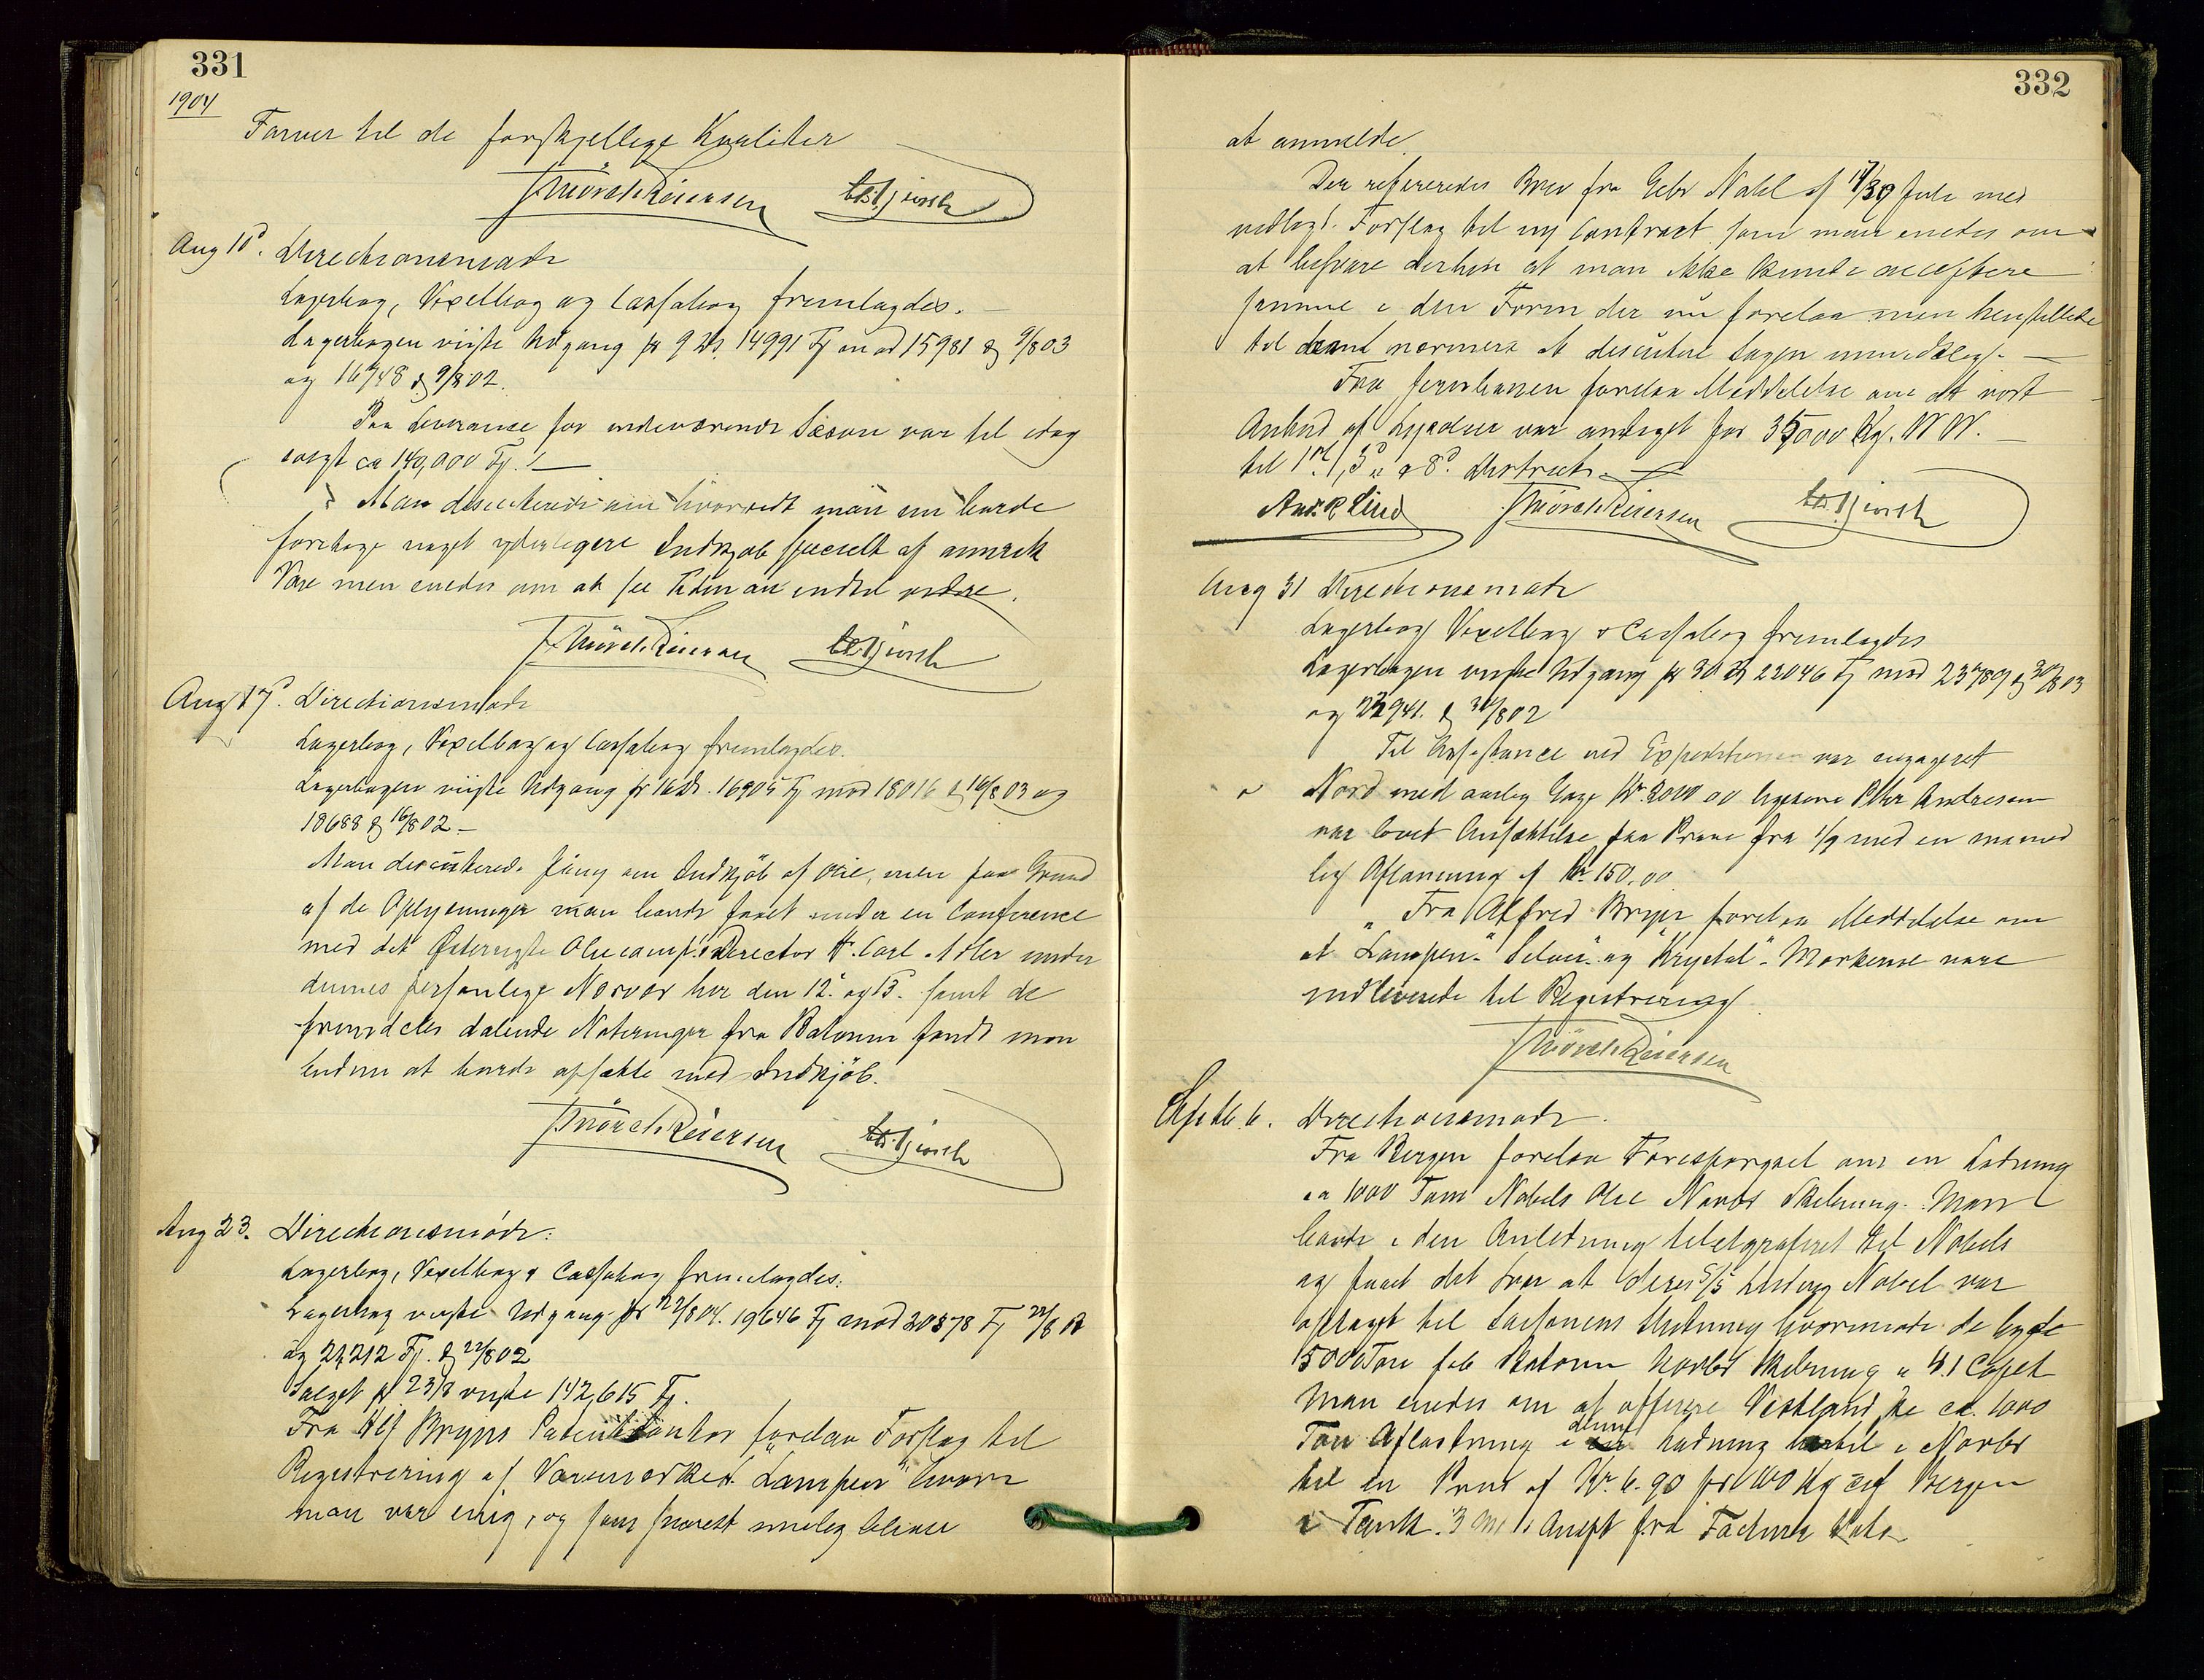 331
1904
Farver til de forskjellige Kvaliter
Thiis Mörch Reiersen
Aug 10d. Directionsmøde
Lagerbog, Vexelbog og Cassabog fremlagdes.
Lagerbogen viiste Udgang pr 9 ds. 14991 Fj mod 15981 d 9/8 03
og 16748 d 9/8 02.
Paa Leverance for indeværende Sæson var til idag
solgt ca 140,000 Fj.
Man discuterede om hvorvidt man nu burde
foretage noget yderligere Indkjøb specielt af amerik
Vare men enedes om at see Tiden an indtil videre.
Aug 17d. Directionsmøde
Lagerbog, Vexelbog og Cassabog fremlagdes.
Lagerbogen viiste Udgang pr 16 ds. 16905 Fj mod 18016 d 16/8 03 og
18688 d 16/8 02 —
Man discuterede spørg om Indkjöb af Olie, men paa Grund
af de Oplysninger man havde faaet under en Conference
med det Østerrigske Oliecomp.s Director Hr. Carl Adler under
dennes personlige Nærvær her den 12. og 13. samt de
fremdeles dalende Noteringer fra Batoum fandt man
endnu at burde opsætte med Indkjöb.
Aug 23. Directionsmöde.
Lagerbog, Vexelbog & Cassabog fremlagdes.
Lagerbog viiste Udgang pr 22/8 04. 19646 Fj mod 20378 Fj 22/8 03
og 21,212 Fj. d 22/8 02
Salget pr 23/8 viiste 142,615 Fj.
Fra Alf Bryns Patentkontor forelaa Forslag til
Registrering af Varemærket "Lampen" hvori
man var enig, og som snarest mulig blive
332
at anmelde.
Der refereredes Brev fra Gebr Nobel af 17/30 Juli med
vedlagt Forslag til ny Contract som man enedes om
at besvare derhen at man ikke kunde acceptere
samme i den Form der nu forelaa men henstillede
til dem nærmere at discutere sagen mundtlig. —
Fra Jernbanen forelaa Meddelelse om at vort
Anbud af Lysolie var antaget for 35000 Kg. W W. —
til 1ste, 3d & 8d. District. —
Andr. R Lind
Aug 31 Directionsmøde
Lagerbog Vexelbog & Cassabog fremlagdes
Lagerbogen viiste Udgang pr 30 ds 22046 Fj mod 23789 d 30/8 03
og 22941. d 30/8 02
Til Assistance ved Expeditionen var engageret
Nord med aarlig Gage Kr. 2000 00 ligesom Peter Andresen
var lovet Ansættelse paa Prøve fra 1/9 med en maaned
lig Aflønning af Kr 150.00
Fra Alfred Bryn forelaa Meddelelse om
at "Lampen" "Silver" og "Krystal" Mærkerne vare
indleverede til Registrering.
Septbr. 6. Directionsmøde.
Fra Bergen forelaa Forespørgsel om en Ladning
ca 1000 Tons Nobels Olie Novbr Skibning. Man
havde i den Anledning telegraferet til Nobels
og faaet det Svar at deres S/S Ludvig Nobel var
optaget til Saisonens Slutning hvorimod de bygde
5000 Ton fob Batoum Novbr Skibning a 4.1 Copek
Man enedes om at offerere Vestland ske ca. 1000
Ton Aflastning i denne Ladning hertil i Novbr
til en Pris af Kr. 6.90 pr 100 Kg cif Bergen
i Tank. 3 Accept fra Factura Dato